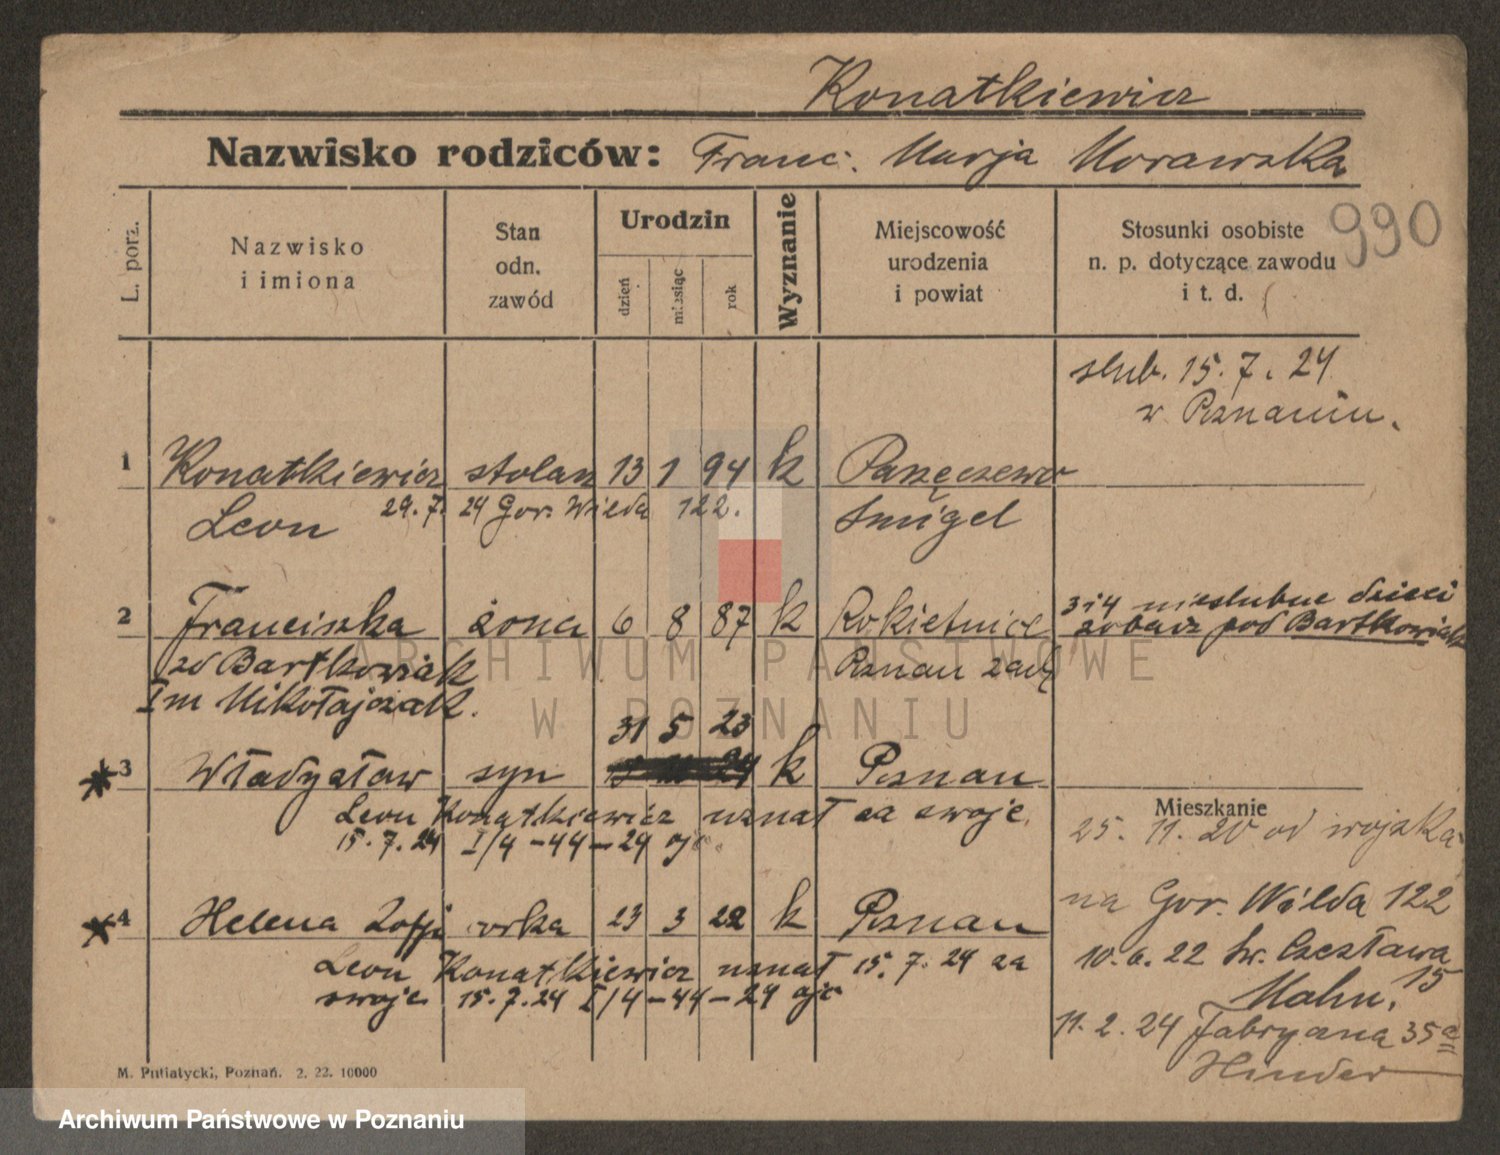 Konatkiewicz
Nazwisko rodziców: Franc. Marja Morawska
990
L. porz.
Nazwisko
i imiona
Stan
odn.
zawód
Urodzin
dzień
miesiąc
rok
Wyznanie
Miejscowość
urodzenia
i powiat
Stosunki osobiste
n. p. dotyczące zawodu
i t. d.
slub. 15. 7. 24
w Poznaniu.
1 Konatkiewicz stolarz 13 1 94 k Parzęczewo
Leon 29. 7. 24 Gor. Wilda 122. Smigel
2 Franciszka żona 6 8 87 k Rokietnica
3 i 4 nieslubne dzieci
zobacz pod Bartkowiak
zd Bartkowiak Poznan zach
Im Mikołajczak.
31 5 23
3 Władysław syn 24 k Poznan
Leon Konatkiewicz uznał za swoje
15. 7. 24 I/4 - 44 - 24
Mieszkanie
25. 11. 20 od wojska
na Gor. Wilda 122
4 Helena Zofja corka 23 3 22 k Poznan
Leon Konatkiewicz uznał 15. 7. 24 za
swoje 15. 7. 24 I/4 - 44 - 24
10. 6. 22 św. Czesława
15
11. 2. 24 Fabryczna 35a
M. Putiatycki, Poznań. 2. 22. 10000
ARCHIWUM PAŃSTWOWE
W POZNANIU
Archiwum Państwowe w Poznaniu